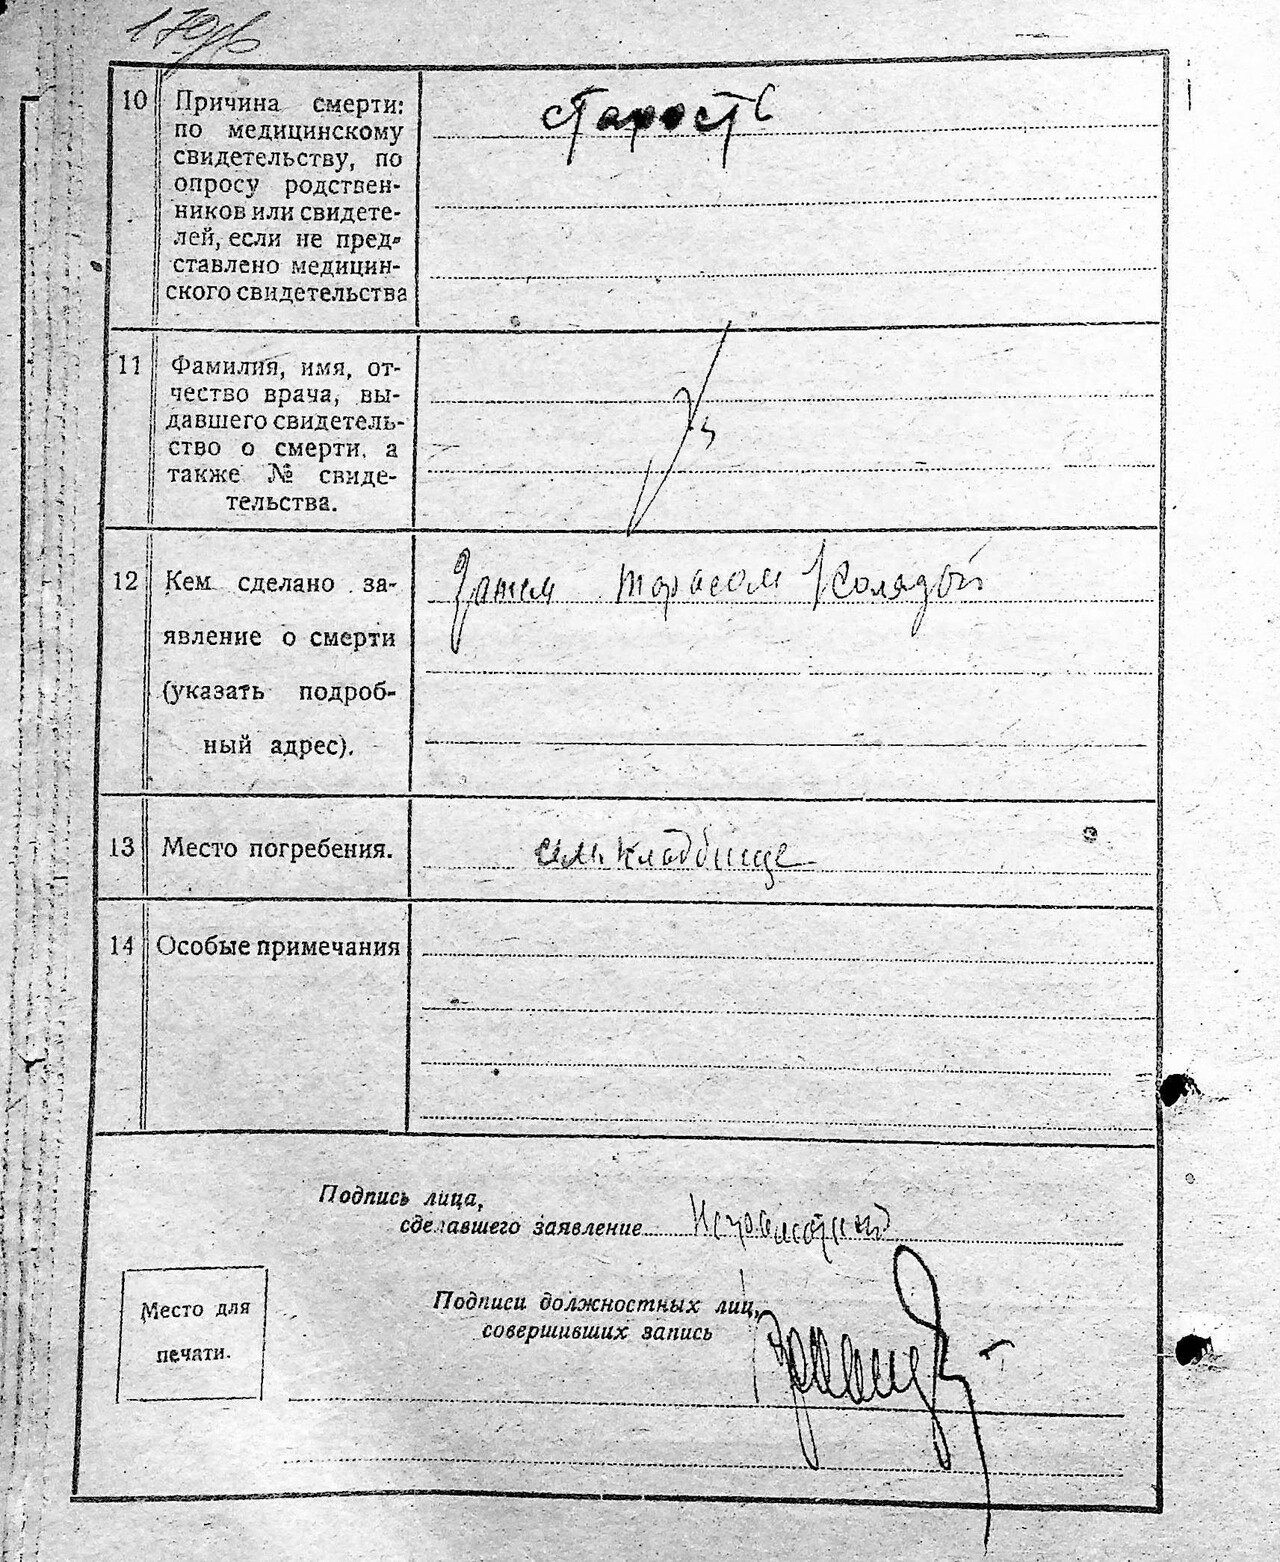 10 Причина смерти:
по медицинскому
свидетельству, по
опросу родствен-
ников или свидете-
лей, если не пред-
ставлено медицин-
ского свидетельства
старость
11 Фамилия, имя, от-
чество врача, вы-
давшего свидетель-
ство о смерти, а
также № свиде-
тельства.
12 Кем сделано за-
явление о смерти
(указать подроб-
ный адрес).
Зятем Тарасом Колядой
13 Место погребения.
сель кладбище
14 Особые примечания
Подпись лица,
сделавшего заявление
Подписи должностных лиц,
совершивших запись
Место для
печати.